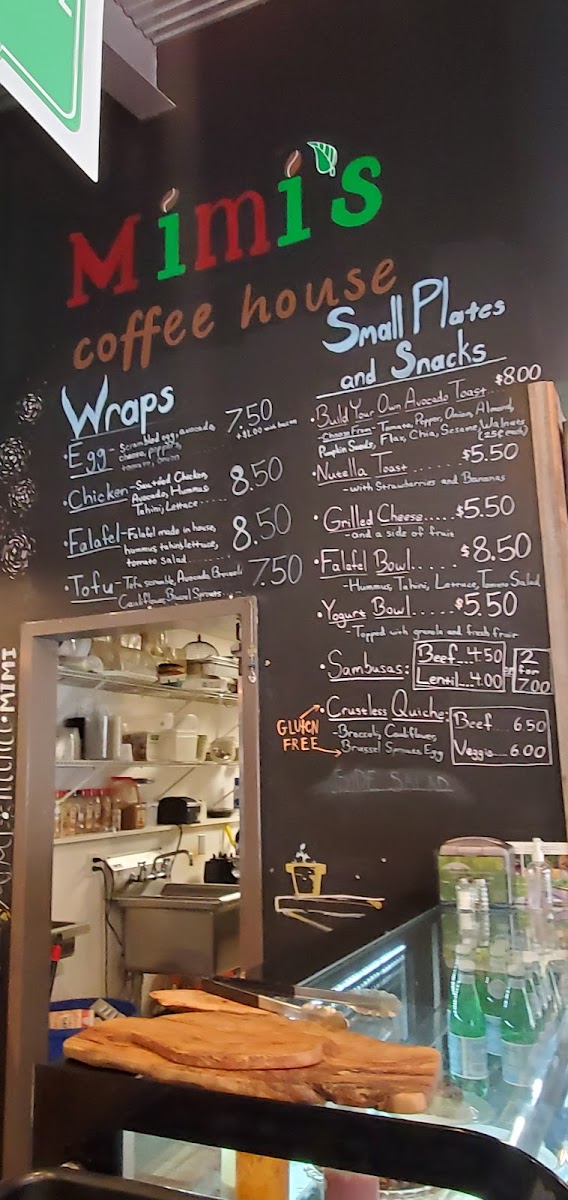 Mimi's
coffee house
Wraps
• Egg - Scrambled egg, avocado,
cheese, peppers,
tomato, onion
7.50
+$1.00 with bacon
• Chicken - Sautéed Chicken,
Avocado, Hummus
Tahini, Lettuce
8.50
• Falafel - Falafel made in house,
hummus, tahini, lettuce,
tomato salad
8.50
• Tofu - Tofu scramble, Avocado, Broccoli
Cauliflower, Brussel Sprouts
7.50
Small Plates
and Snacks
• Build Your Own Avocado Toast $8.00
Choose From - Tomato, Pepper, Onion, Almond,
Pumpkin Seeds, Flax, Chia, Sesame, Walnuts
(25¢ each)
• Nutella Toast $5.50
- with Strawberries and Bananas
• Grilled Cheese..... $5.50
- and a side of fruit
• Falafel Bowl..... $8.50
- Hummus, Tahini, Lettuce, Tomato Salad
• Yogurt Bowl..... $5.50
- Topped with granola and fresh fruit
• Sambusas: Beef...4.50
Lentil...4.00
or
2
for
7.00
• Crustless Quiche:
- Broccoli, Cauliflower,
Brussel Sprouts, Egg
Beef....6.50
Veggie...6.00
GLUTEN
FREE
SIDE SALAD
MIMI